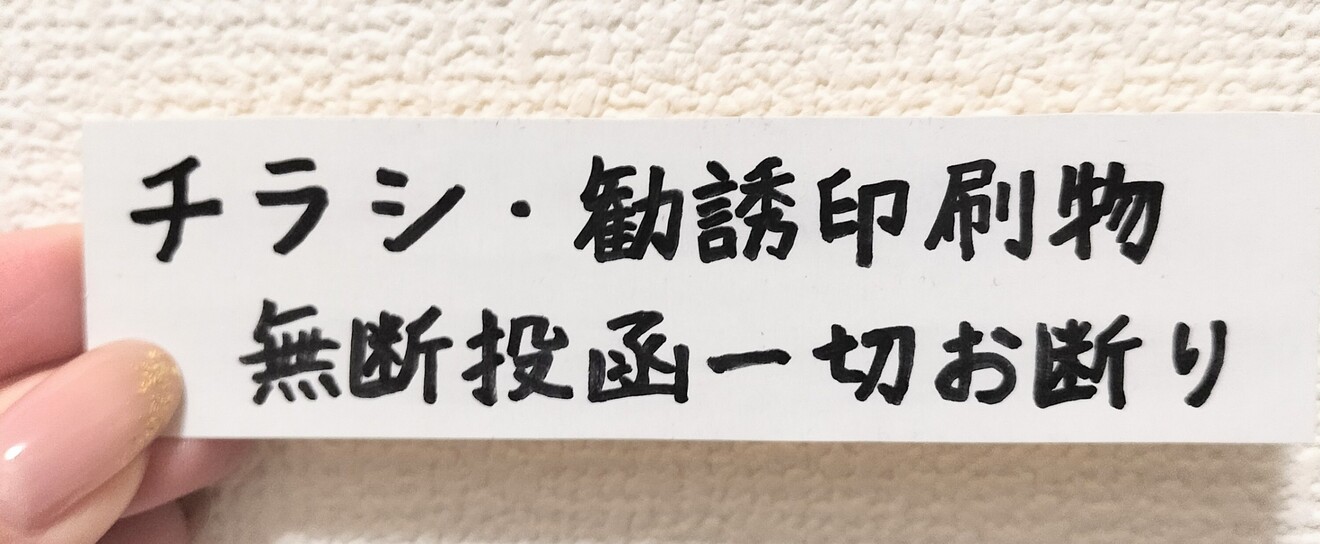 チラシ・勧誘印刷物
無断投函一切お断り